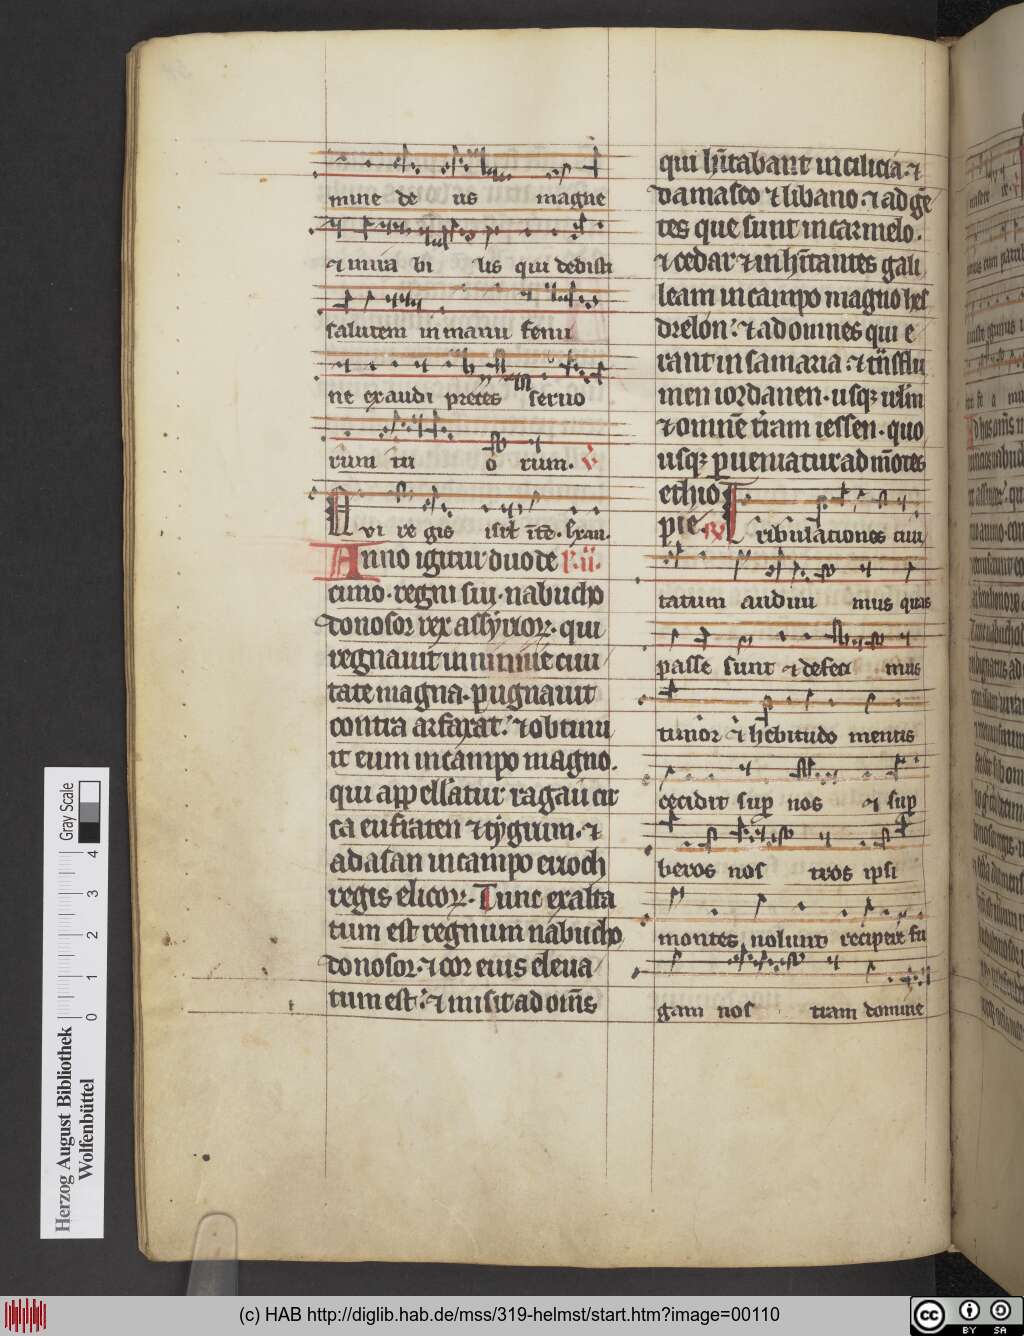 mine de us magne
⁊ mira bi lis qui dedisti
salutem in manu femi
ne exaudi preces seruo
rum tu o rum. v̄
vi re gis isrl
Anno igitur duode l.ii.
cimo. regni sui. nabucho
donosor rex assyrioꝝ. qui
regnauit in niniue ciui
tate magna. pugnauit
contra arfaxat. ⁊ obtinu
it eum in campo magno.
qui appellatur ragau cir
ca eufraten ⁊ tygrim. ⁊
adasan in campo erioch
regis elicoꝝ. Tunc exalta
tum est regnum nabucho
donosor. ⁊ cor eius eleua
tum est. ⁊ misit ad om̄s
qui hītabant in cilicia. ⁊
damasco ⁊ libano. ⁊ ad gē
tes que sunt in carmelo.
⁊ cedar ⁊ inhītantes gali
leam in campo magno hes
drelon. ⁊ ad omnes qui e
rant in samaria. ⁊ tn̄s flu
men iordanen. usqꝫ irlm̄
⁊ omnē tr̄am iessen. quo
usqꝫ ꝑueniatur ad mōtes
ethio
pie. ℟ Tribulationes ciui
tatum audiui mus quas
passe sunt ⁊ defeci mus
timor ⁊ hebitudo mentis
cecidit suꝑ nos ⁊ suꝑ
beros nos tros ipsi
montes nolunt recipere fu
gam nos tram domine
Gray Scale
4
3
2
1
0
Herzog August Bibliothek
Wolfenbüttel
(c) HAB http://diglib.hab.de/mss/319-helmst/start.htm?image=00110
cc BY SA